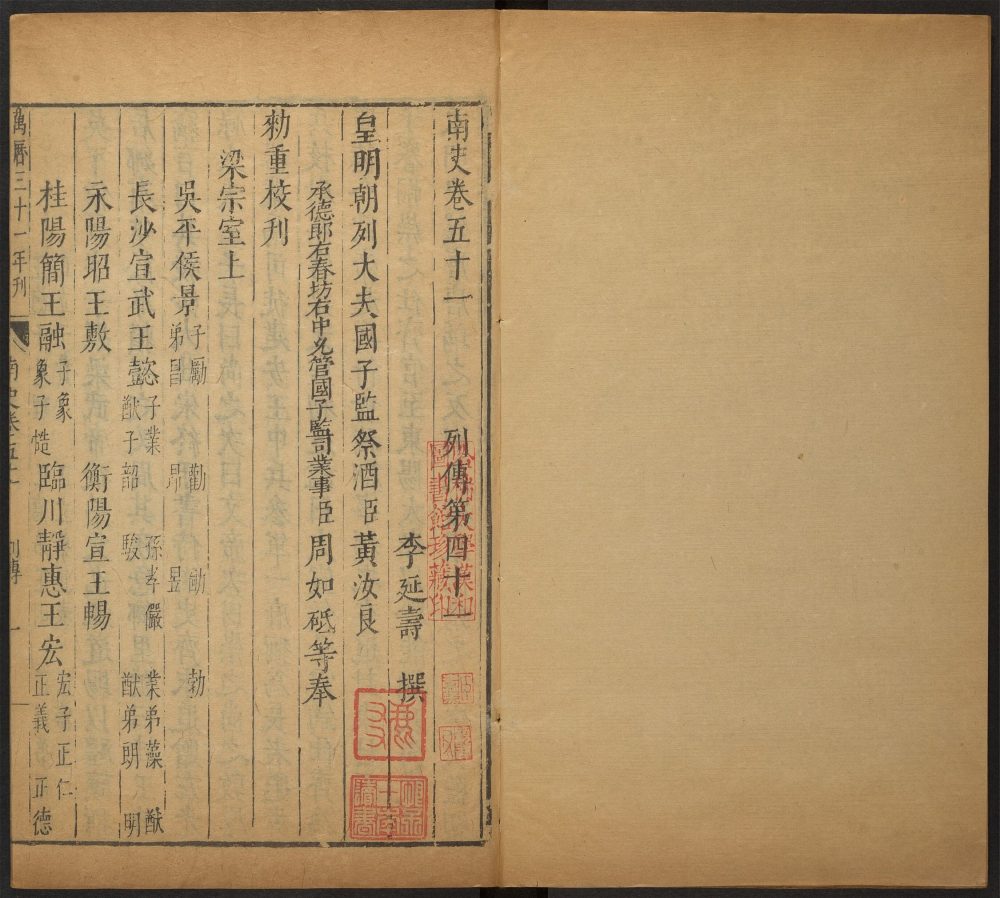 南史卷五十一　列傳第四十一
李延壽　撰
皇明朝列大夫國子監祭酒臣黃汝良
承德郎右春坊右中允管國子監司業事臣周如砥等奉
勑重校刊
梁宗室上
吳平侯景　子勵　勸　勔　勃　弟昌　昂　昱
長沙宣武王懿　子業　孫孝儼　業弟藻　猷　猷子韶　駿　猷弟朗　明
永陽昭王敷　衡陽宣王暢
桂陽簡王融　子象　象子慥　臨川靜惠王宏　宏子正仁　正義　正德
萬曆三十一年刊
南史卷五十一　列傳　一